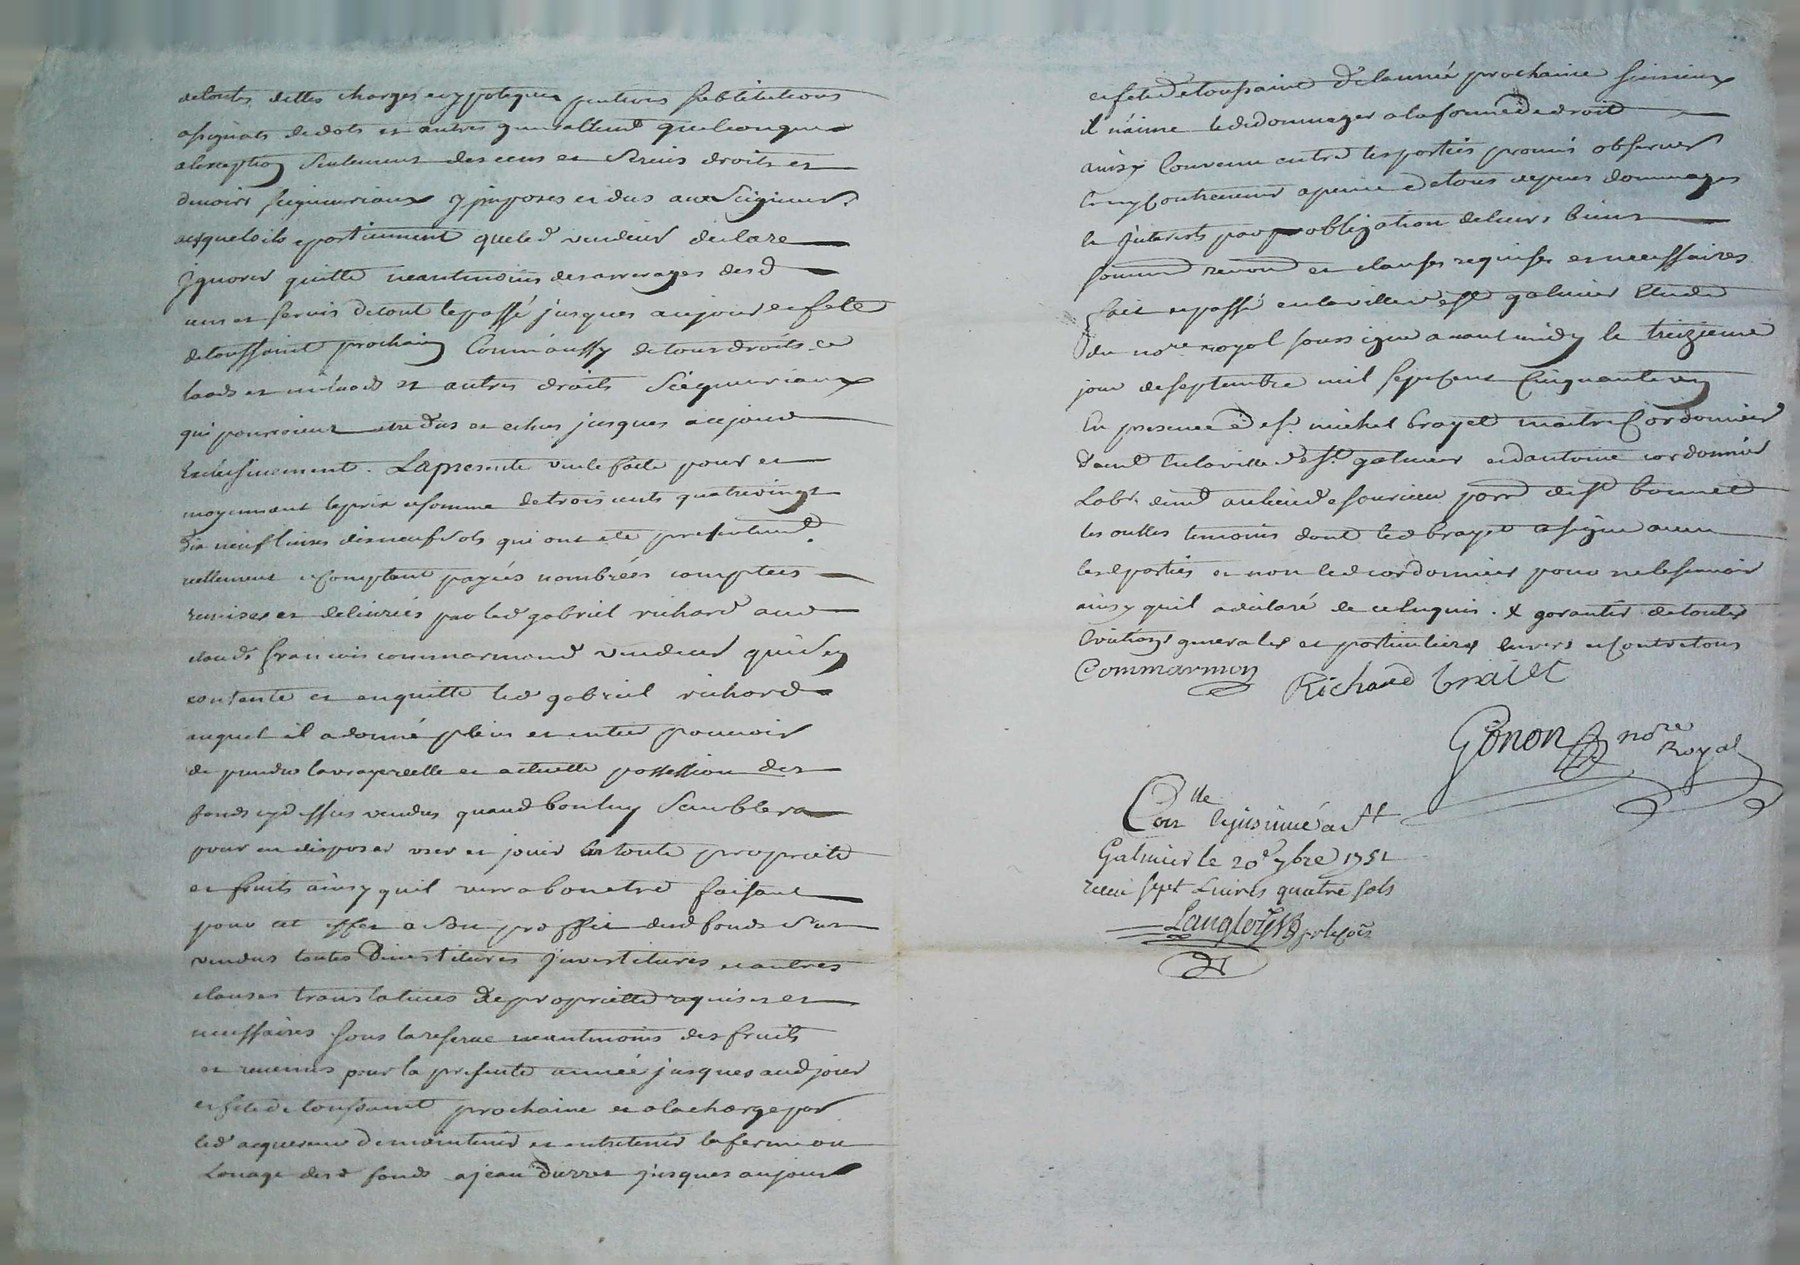 detoutes dettes charges et ypoteques pentions subtitutions
assignats dedots et autres generallem.t quelconques
alexception seulement des cens et servis droits et
devoirs seigneuriaux y imposes et dus aux seigneurs
ausquels ils apartiennent queled vendeur declare
Ignorer quitte neantmoins des arrerages desd
cens et servis detout lepassé jusques aujour et fete
detoussaint prochain Commaussy detous droits de
laods et milaods et autres droits seigneuriaux
qui pourroient etre dus et echus jusques acejour
Inclusivement. Lapresente vente faite pour et
moyennant leprix et somme detrois cents quatrevingt
dix neuf livres dixneuf sols qui ont ete presentem.t
reellement et comptant payés nombrées comptées
remises et delivrées par led gabriel richard aud
claude francois commarmond vendeur quisen
contente et enquitte led gabriel richard
auquel il adonné plein et entier pouvoir
de prendre lavraye reelle et actuelle possession des
fonds cydessus vendus quand bon luy semblera
pour en disposer user et jouir en toute propriete
et fruits ainsy quil verra bon etre faisant
pour cet effet a son proffit dud fonds sus
vendus toutes Devestitures Investitures et autres
clauses translatives de propriette requises et
necessaires sous lareserve neantmoins des fruits
et revenus pour la presente année jusques aud jour
et fete de toussaint prochaine et alacharge par
led acquereur de maintenir et entretenir laferme ou
Louage desd fonds ajean jusques aujour
et fete de toussaint de lannée prochaine sy mieux
il naime le dedommager alaforme de droit
ainsy Convenu entre lesparties promis observer
apeine detous depens dommages
et Interests par obligation deleurs biens
soum renon et clauses requises et necessaires
fait et passé enlaville de st galmier Etude
du no.re royal soussigné avant midy le treizieme
jour deseptembre mil septcent Cinquante un
En presence de s.r michel brayet maitre Cordonnier
dem.t enlaville de s.t galmier et dantoine cordonnier
Lab.r dem.t aulieu de sourcieu parr de st bonnet
les outtes temoins dont led brayet asigné avec
lesd parties et non led cordonnier pour nelesavoir
ainsy quil adeclaré de ce enquis. & garantir detoutes
Evictions generales et particulieres envers et Contre tous
Commarmon Richard braiet
Gonon no.re
Royal
Con.lle Et insinué a St
Galmier le 20.e 7bre 1751
receu sept Livres quatre sols
Langlois